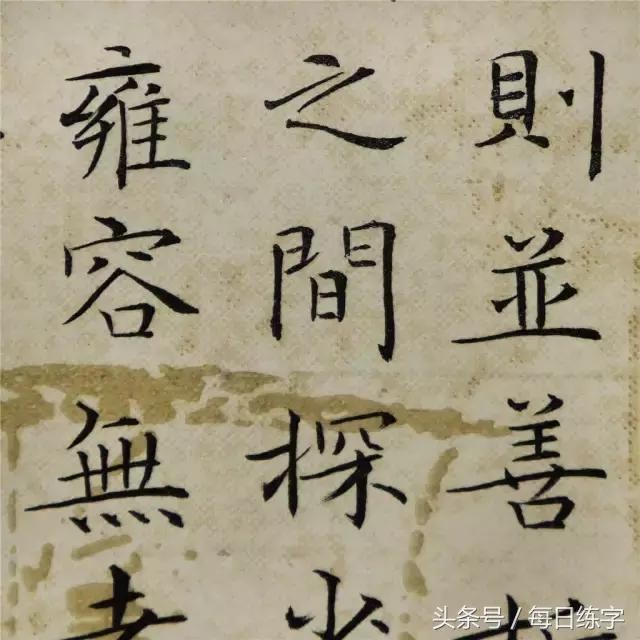 則並善
之間探
雍容無
头条号／每日练字